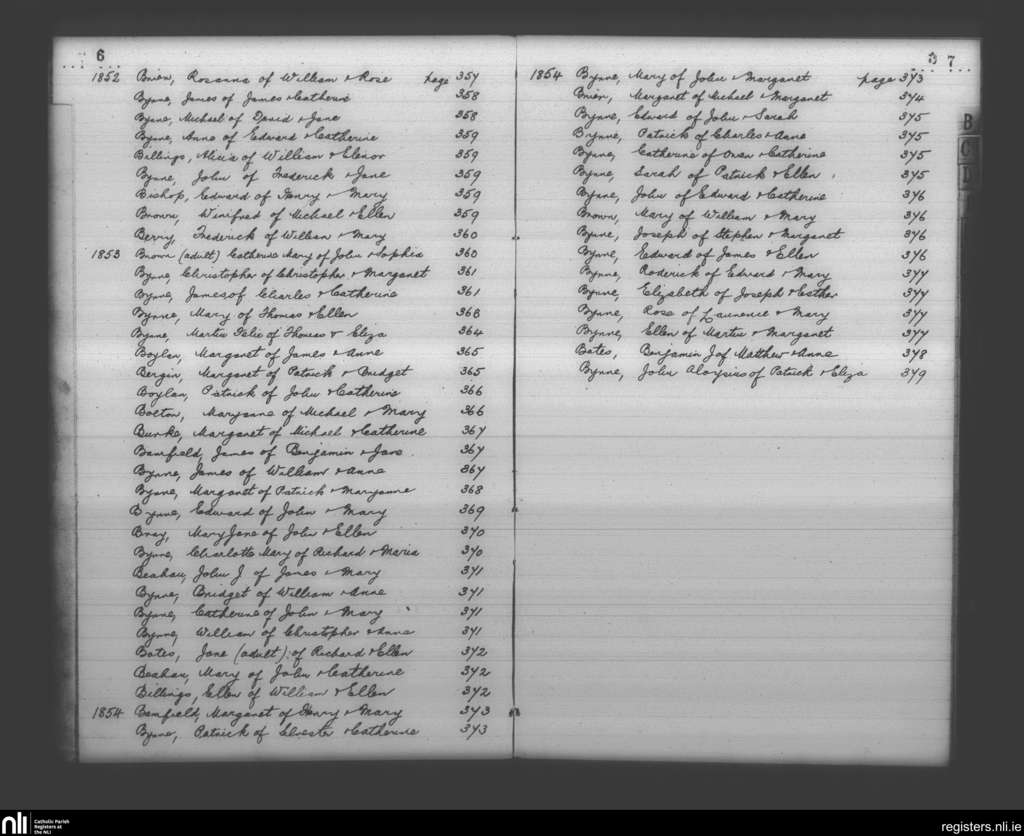 6
1852 Brien, Rosanna of William & Rose page 357
Byrne, James of James & Catherine 358
Byrne, Michael of David & Jane 358
Byrne, Anne of Edward & Catherine 359
Billings, Alicia of William & Elenor 359
Byrne, John of Frederick & Jane 359
Bishop, Edward of Henry & Mary 359
Brown, Winifred of Michael & Ellen 359
Berry, Frederick of William & Mary 360
1853 Brown (adult) Catherine Mary of John & Sophia 360
Byrne, Christopher of Christopher & Margaret 361
Byrne, James of Charles & Catherine 361
Byrne, Mary of Thomas & Ellen 363
Byrne, Martin Felix of Thomas & Eliza 364
Boylan, Margaret of James & Anne 365
Bergin, Margaret of Patrick & Bridget 365
Boylan, Patrick of John & Catherine 366
Bolton, Maryanne of Michael & Mary 366
Burke, Margaret of Michael & Catherine 367
Bamfield, James of Benjamin & Jane 367
Byrne, James of William & Anne 367
Byrne, Margaret of Patrick & Maryanne 368
Byrne, Edward of John & Mary 369
Bray, Mary Jane of John & Ellen 370
Byrne, Charlotte Mary of Richard & Maria 370
Beahan, John J of James & Mary 371
Byrne, Bridget of William & Anne 371
Byrne, Catherine of John & Mary 371
Byrne, William of Christopher & Anne 371
Bates, Jane (adult) of Richard & Ellen 372
Beahan, Mary of John & Catherine 372
Billings, Ellen of William & Ellen 372
1854 Bamfield, Margaret of Henry & Mary 373
Byrne, Patrick of Silvester & Catherine 373
3 7
1854 Byrne, Mary of John & Margaret page 373
Brien, Margaret of Michael & Margaret 374
Byrne, Edward of John & Sarah 375
Byrne, Patrick of Charles & Anne 375
Byrne, Catherine of Owen & Catherine 375
Byrne, Sarah of Patrick & Ellen 375
Byrne, John of Edward & Catherine 376
Brown, Mary of William & Mary 376
Byrne, Joseph of Stephen & Margaret 376
Byrne, Edward of James & Ellen 376
Byrne, Roderick of Edward & Mary 377
Byrne, Elizabeth of Joseph & Esther 377
Byrne, Rose of Laurence & Mary 377
Byrne, Ellen of Martin & Margaret 377
Bates, Benjamin J of Matthew & Anne 378
Byrne, John Aloysius of Patrick & Eliza 379
B
C
D
nli Catholic Parish
Registers at
the NLI
registers.nli.ie